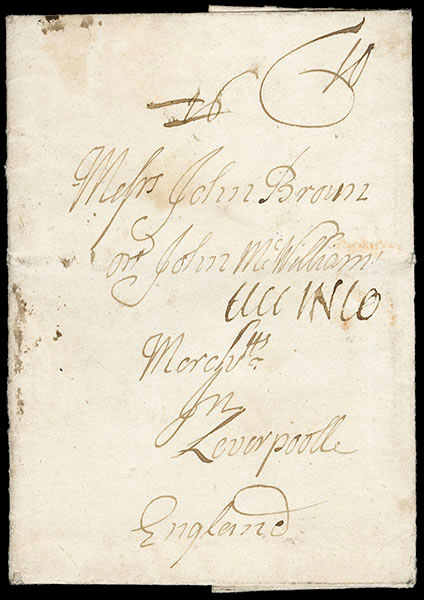 16
Messrs John Brown
or John McWilliam
IN 10
Merchts
In
Leverpoolle
England